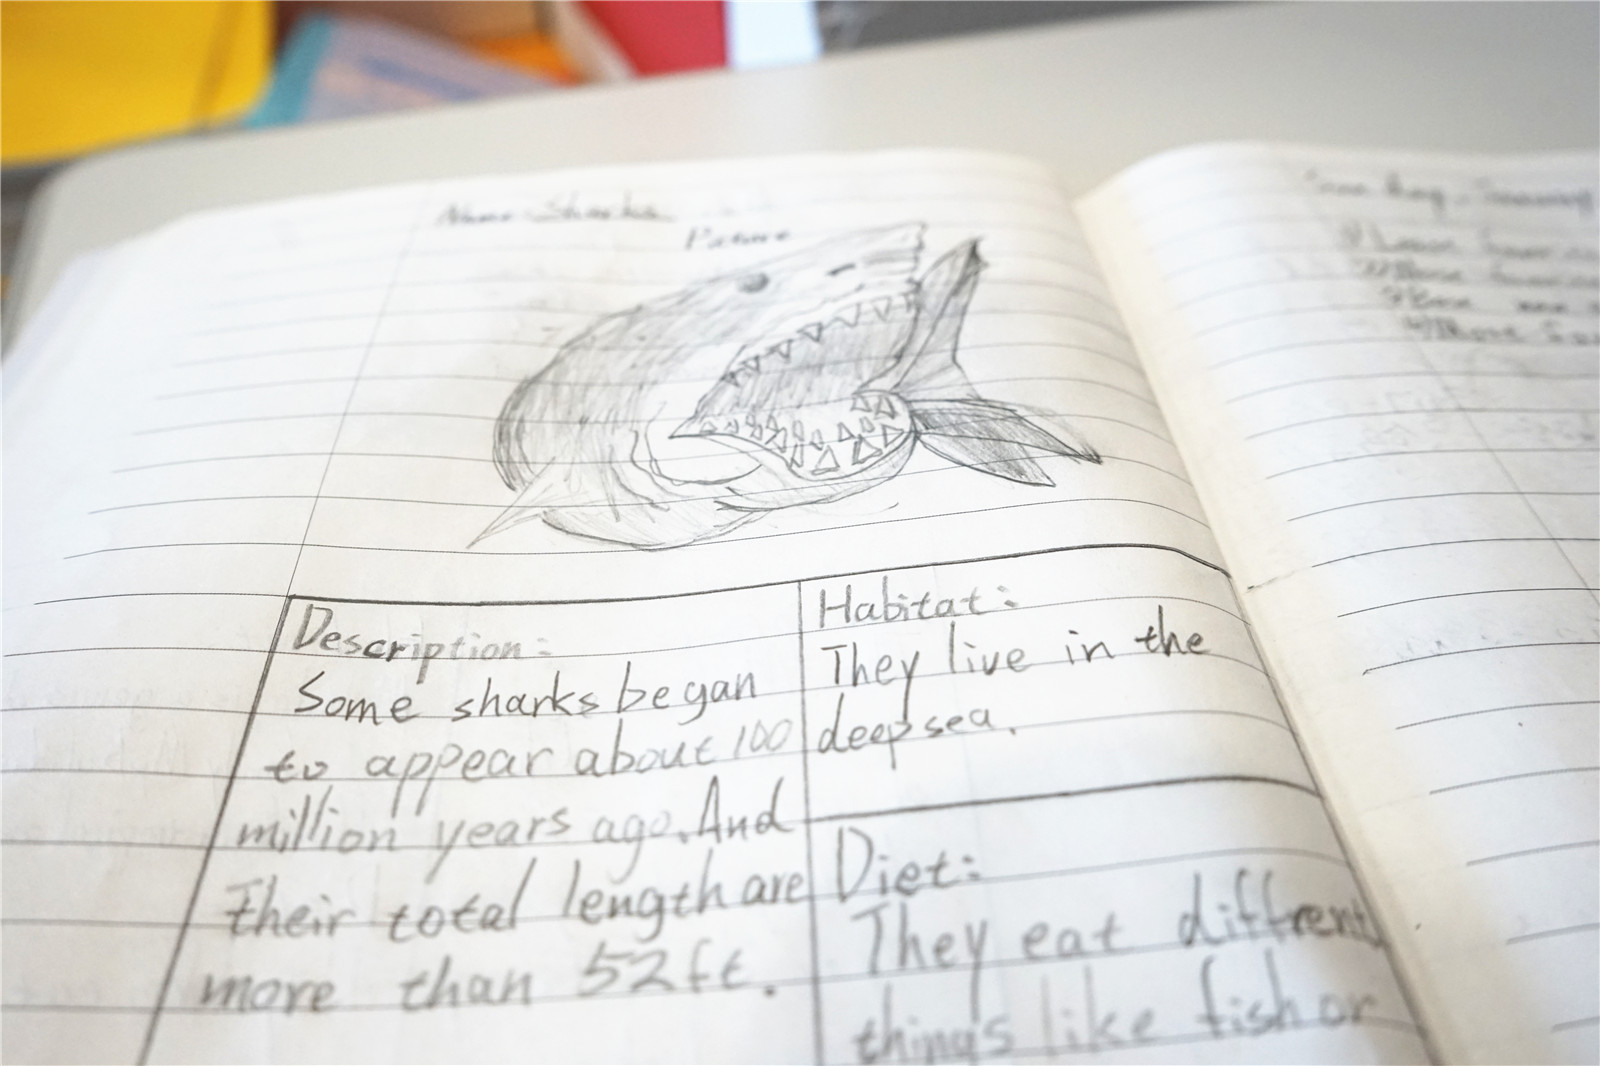 Name: Sharks
Picture
Description:
Some sharks began
to appear about 100
million years ago. And
their total length are
more than 52ft.
Habitat:
They live in the
deep sea.
Diet:
They eat diffrent
things like fish or